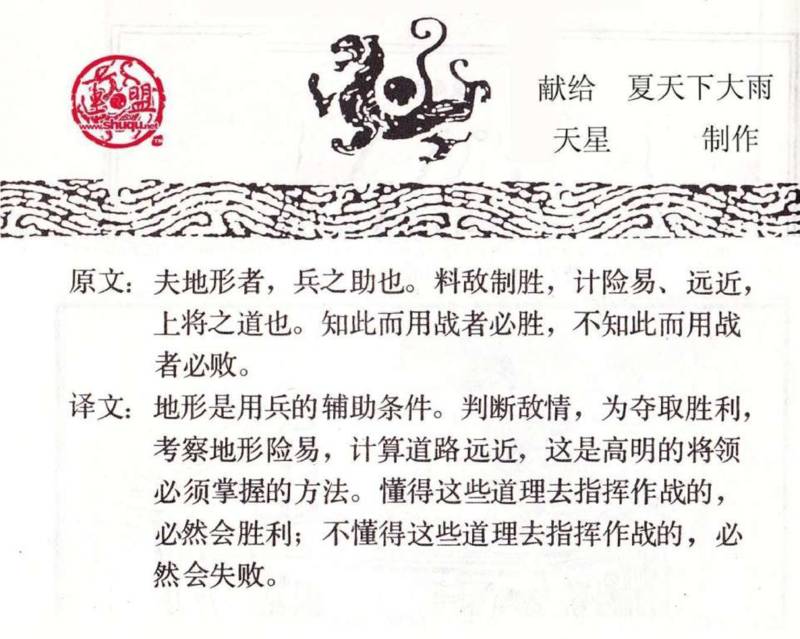 連盟
www.shuqu.net
TM
献给 夏天下大雨
天星 制作
原文：夫地形者，兵之助也。料敌制胜，计险易、远近，
上将之道也。知此而用战者必胜，不知此而用战
者必败。
译文：地形是用兵的辅助条件。判断敌情，为夺取胜利，
考察地形险易，计算道路远近，这是高明的将领
必须掌握的方法。懂得这些道理去指挥作战的，
必然会胜利；不懂得这些道理去指挥作战的，必
然会失败。